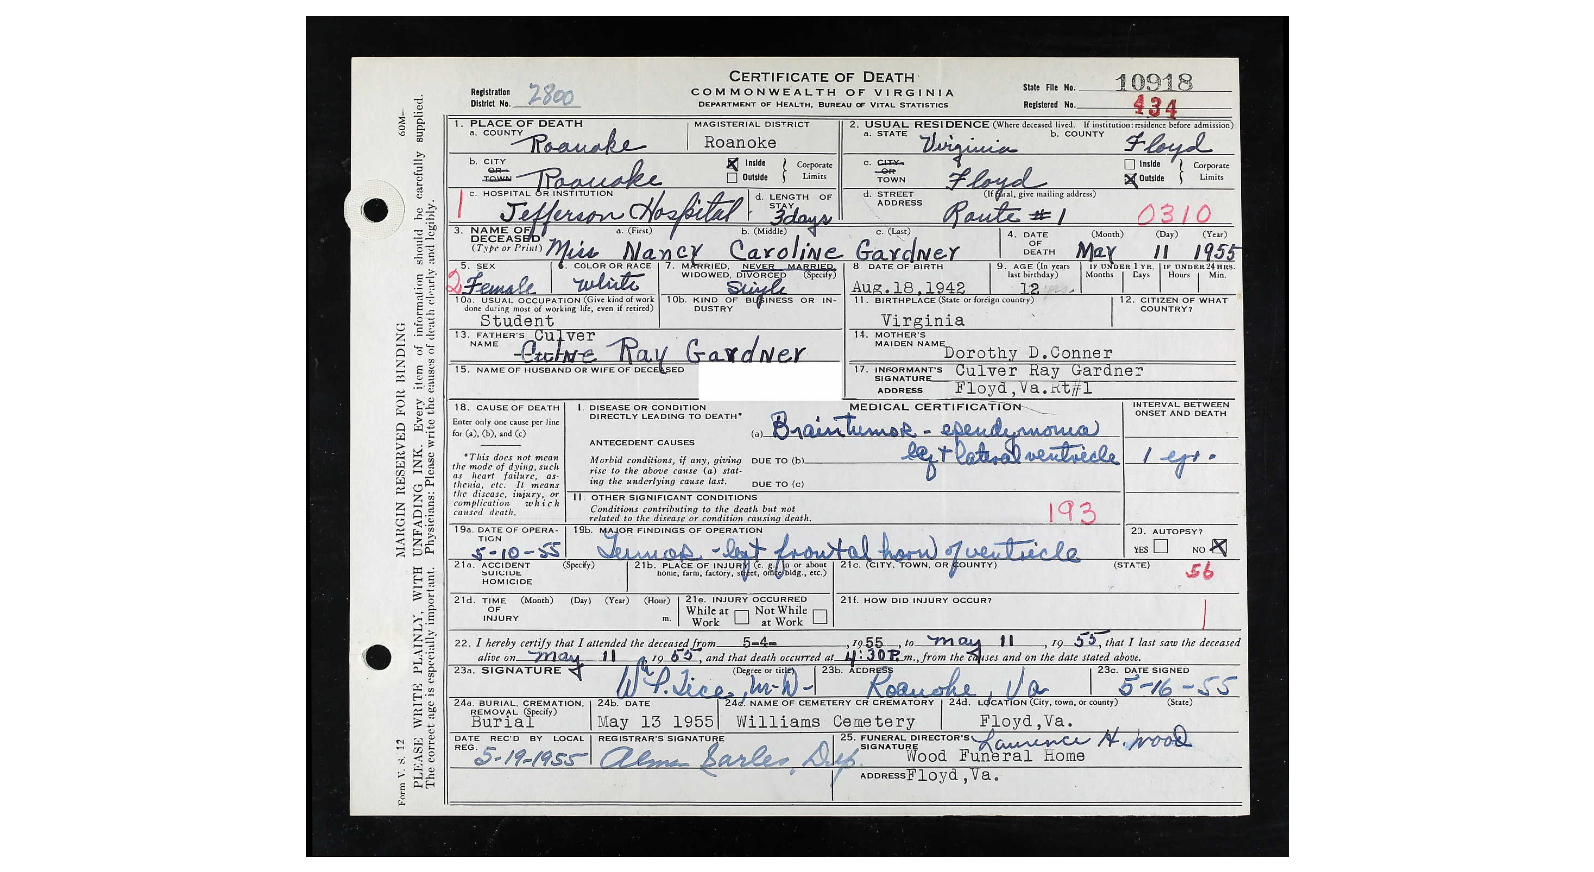 CERTIFICATE OF DEATH
COMMONWEALTH OF VIRGINIA
DEPARTMENT OF HEALTH, BUREAU OF VITAL STATISTICS
Registration District No. 2800
State File No. 10918
Registered No. 434
1. PLACE OF DEATH
a. COUNTY Roanoke
MAGISTERIAL DISTRICT Roanoke
2. USUAL RESIDENCE (Where deceased lived. If institution: residence before admission)
a. STATE Virginia b. COUNTY Floyd
b. CITY OR TOWN Roanoke
Inside Outside Corporate Limits
c. CITY OR TOWN Floyd
Inside Outside Corporate Limits
1
c. HOSPITAL OR INSTITUTION Jefferson Hospital
d. LENGTH OF STAY 3 days
d. STREET ADDRESS (If rural, give mailing address) Route #1 0310
3. NAME OF DECEASED (Type or Print) a. (First) b. (Middle) c. (Last)
Miss Nancy Caroline Gardner
4. DATE OF DEATH (Month) (Day) (Year)
May 11 1955
2
5. SEX Female
6. COLOR OR RACE White
7. MARRIED, NEVER MARRIED, WIDOWED, DIVORCED (Specify) Single
8 DATE OF BIRTH Aug.18,1942
9. AGE (In years last birthday) 12
IF UNDER 1 YR. Months Days
IF UNDER 24 HRS. Hours Min.
10a. USUAL OCCUPATION (Give kind of work done during most of working life, even if retired)
Student
10b. KIND OF BUSINESS OR INDUSTRY
11. BIRTHPLACE (State or foreign country)
Virginia
12. CITIZEN OF WHAT COUNTRY?
13. FATHER'S NAME Culver
Ray Gardner
14. MOTHER'S MAIDEN NAME Dorothy D.Conner
15. NAME OF HUSBAND OR WIFE OF DECEASED
17. INFORMANT'S SIGNATURE Culver Ray Gardner
ADDRESS Floyd,Va.Rt#1
18. CAUSE OF DEATH
Enter only one cause per line for (a), (b), and (c)
*This does not mean the mode of dying, such as heart failure, asthenia, etc. It means the disease, injury, or complication which caused death.
MEDICAL CERTIFICATION
INTERVAL BETWEEN ONSET AND DEATH
I. DISEASE OR CONDITION DIRECTLY LEADING TO DEATH*
(a) Brain tumor - ependymoma
left lateral ventricle 1 yr.
ANTECEDENT CAUSES
Morbid conditions, if any, giving rise to the above cause (a) stating the underlying cause last.
DUE TO (b)
DUE TO (c)
II OTHER SIGNIFICANT CONDITIONS
Conditions contributing to the death but not related to the disease or condition causing death.
193
19a. DATE OF OPERATION 5-10-55
19b. MAJOR FINDINGS OF OPERATION
Tumor - left frontal horn of ventricle
20. AUTOPSY?
YES NO
21a. ACCIDENT SUICIDE HOMICIDE (Specify)
21b. PLACE OF INJURY (e. g., in or about home, farm, factory, street, office bldg., etc.)
21c. (CITY, TOWN, OR COUNTY) (STATE)
56
21d. TIME OF INJURY (Month) (Day) (Year) (Hour) m.
21e. INJURY OCCURRED
While at Work Not While at Work
21f. HOW DID INJURY OCCUR?
1
22. I hereby certify that I attended the deceased from 5-4-, 1955, to May 11, 1955, that I last saw the deceased
alive on May 11, 1955, and that death occurred at 4:30P.m., from the causes and on the date stated above.
23a. SIGNATURE (Degree or title)
Wm P. Tice, M-D-
23b. ADDRESS
Roanoke, Va
23c. DATE SIGNED
5-16-55
24a. BURIAL, CREMATION, REMOVAL (Specify)
Burial
24b. DATE
May 13 1955
24c. NAME OF CEMETERY OR CREMATORY
Williams Cemetery
24d. LOCATION (City, town, or county) (State)
Floyd,Va.
DATE REC'D BY LOCAL REG.
5-19-1955
REGISTRAR'S SIGNATURE
Alma Sarles, Dep.
25. FUNERAL DIRECTOR'S SIGNATURE Laurence H. Wood
Wood Funeral Home
ADDRESS Floyd,Va.
Form V. S. 12
60M—
MARGIN RESERVED FOR BINDING
PLEASE WRITE PLAINLY, WITH UNFADING INK. Every item of information should be carefully supplied.
The correct age is especially important. Physicians: Please write the causes of death clearly and legibly.